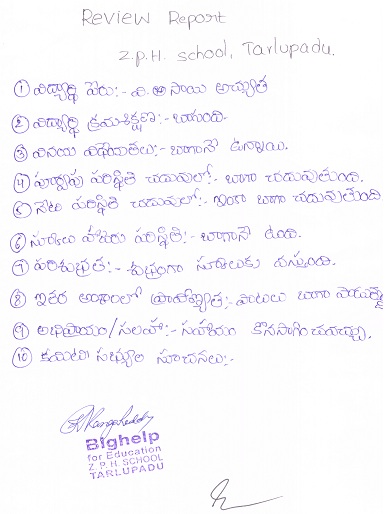 Review Report
Z.P.H. School, Tarlupadu.
① విద్యార్థి పేరు:- వి. అ సాయి అచ్యుత
② విద్యార్థి క్రమశిక్షణ:- బాగుంది.
③ వినయ విధేయతలు:- బాగానే ఉన్నాయి.
④ పూర్వపు పరిస్థితి చదువులో:- బాగా చదువుతుంది.
⑤ నేటి పరిస్థితి చదువులో:- ఇంకా బాగా చదువుతుంది
⑥ స్కూలు హాజరు పరిస్థితి:- బాగానే ఉంది.
⑦ పరిశుభ్రత:- శుభ్రంగా స్కూలుకు వస్తుంది.
⑧ ఇతర అంశాలలో ప్రావీణ్యత:- పాటలు బాగా
⑨ అభిప్రాయం/సలహా:- సహాయం కొనసాగించవచ్చు.
⑩ కమిటీ సభ్యుల సూచనలు:-
Bighelp
for Education
Z.P.H. SCHOOL
TARLUPADU